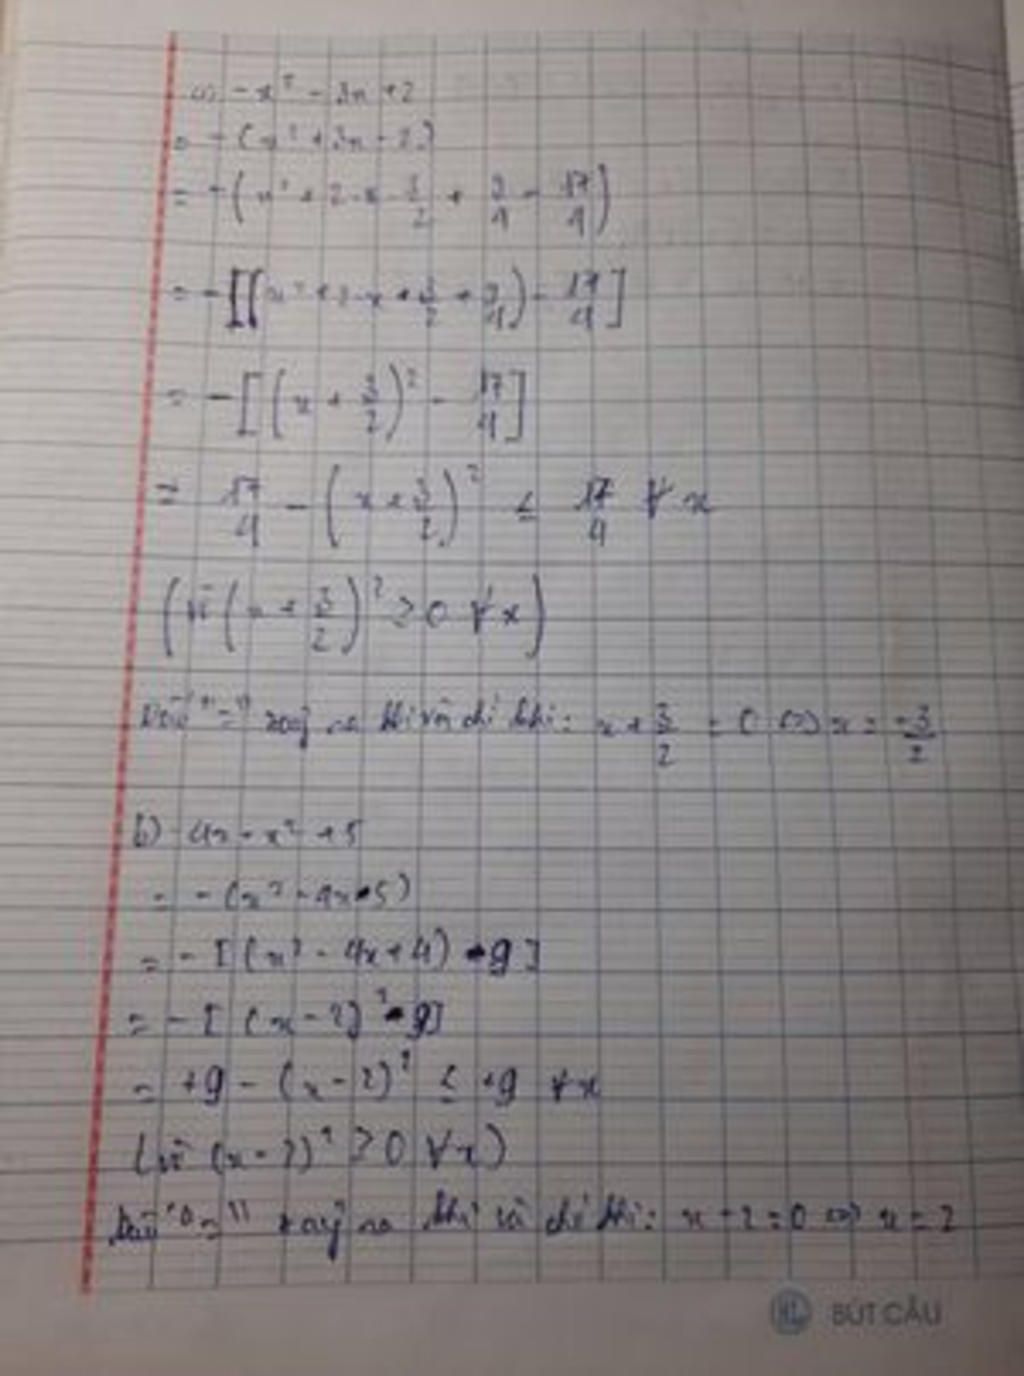 a) -x² - 3x + 2
= -(x² + 3x - 2)
= -(x² + 2·x·3/2 + 9/4 - 17/4)
= -[(x² + 2·x·3/2 + 9/4) - 17/4]
= -[(x + 3/2)² - 17/4]
= 17/4 - (x + 3/2)² ≤ 17/4 ∀x
(vì (x + 3/2)² ≥ 0 ∀x)
Dấu "=" xảy ra khi và chỉ khi: x + 3/2 = 0 <=> x = -3/2
b) 4x - x² + 5
= -(x² - 4x - 5)
= -[(x² - 4x + 4) - 9]
= -[(x - 2)² - 9]
= +9 - (x - 2)² ≤ +9 ∀x
(vì (x - 2)² ≥ 0 ∀x)
Dấu "=" xảy ra khi và chỉ khi: x - 2 = 0 <=> x = 2
HL BÚT CÂU